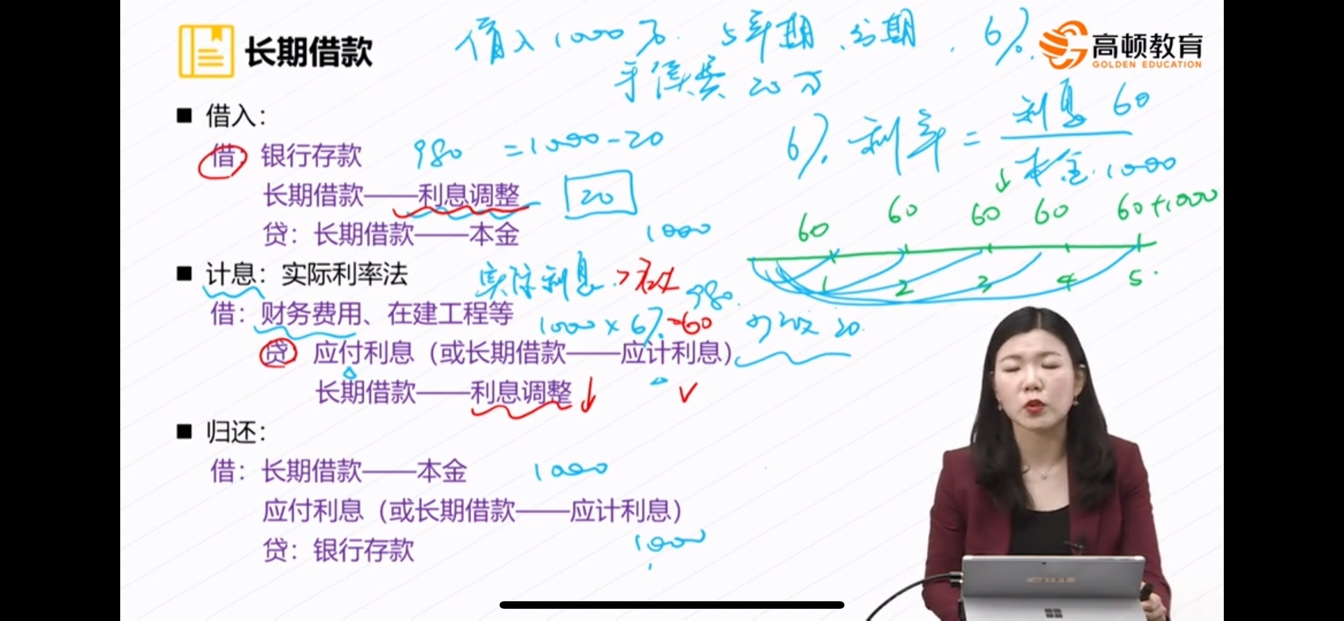 长期借款
借入1000万. 5年期、分期, 6%.
手续费 20万
高顿教育
GOLDEN EDUCATION
■ 借入：
借：银行存款 980 =1000-20
长期借款——利息调整 20
贷：长期借款——本金 1000
6%.利率 = 利息 60
本金.1000
60 60 60 60 60+1000
1 2 3 4 5.
■ 计息：实际利率法 实际利息.
980.
借：财务费用、在建工程等 1000×6%=60 20.
贷：应付利息（或长期借款——应计利息）
长期借款——利息调整
■ 归还：
借：长期借款——本金 1000
应付利息（或长期借款——应计利息）
贷：银行存款 1000